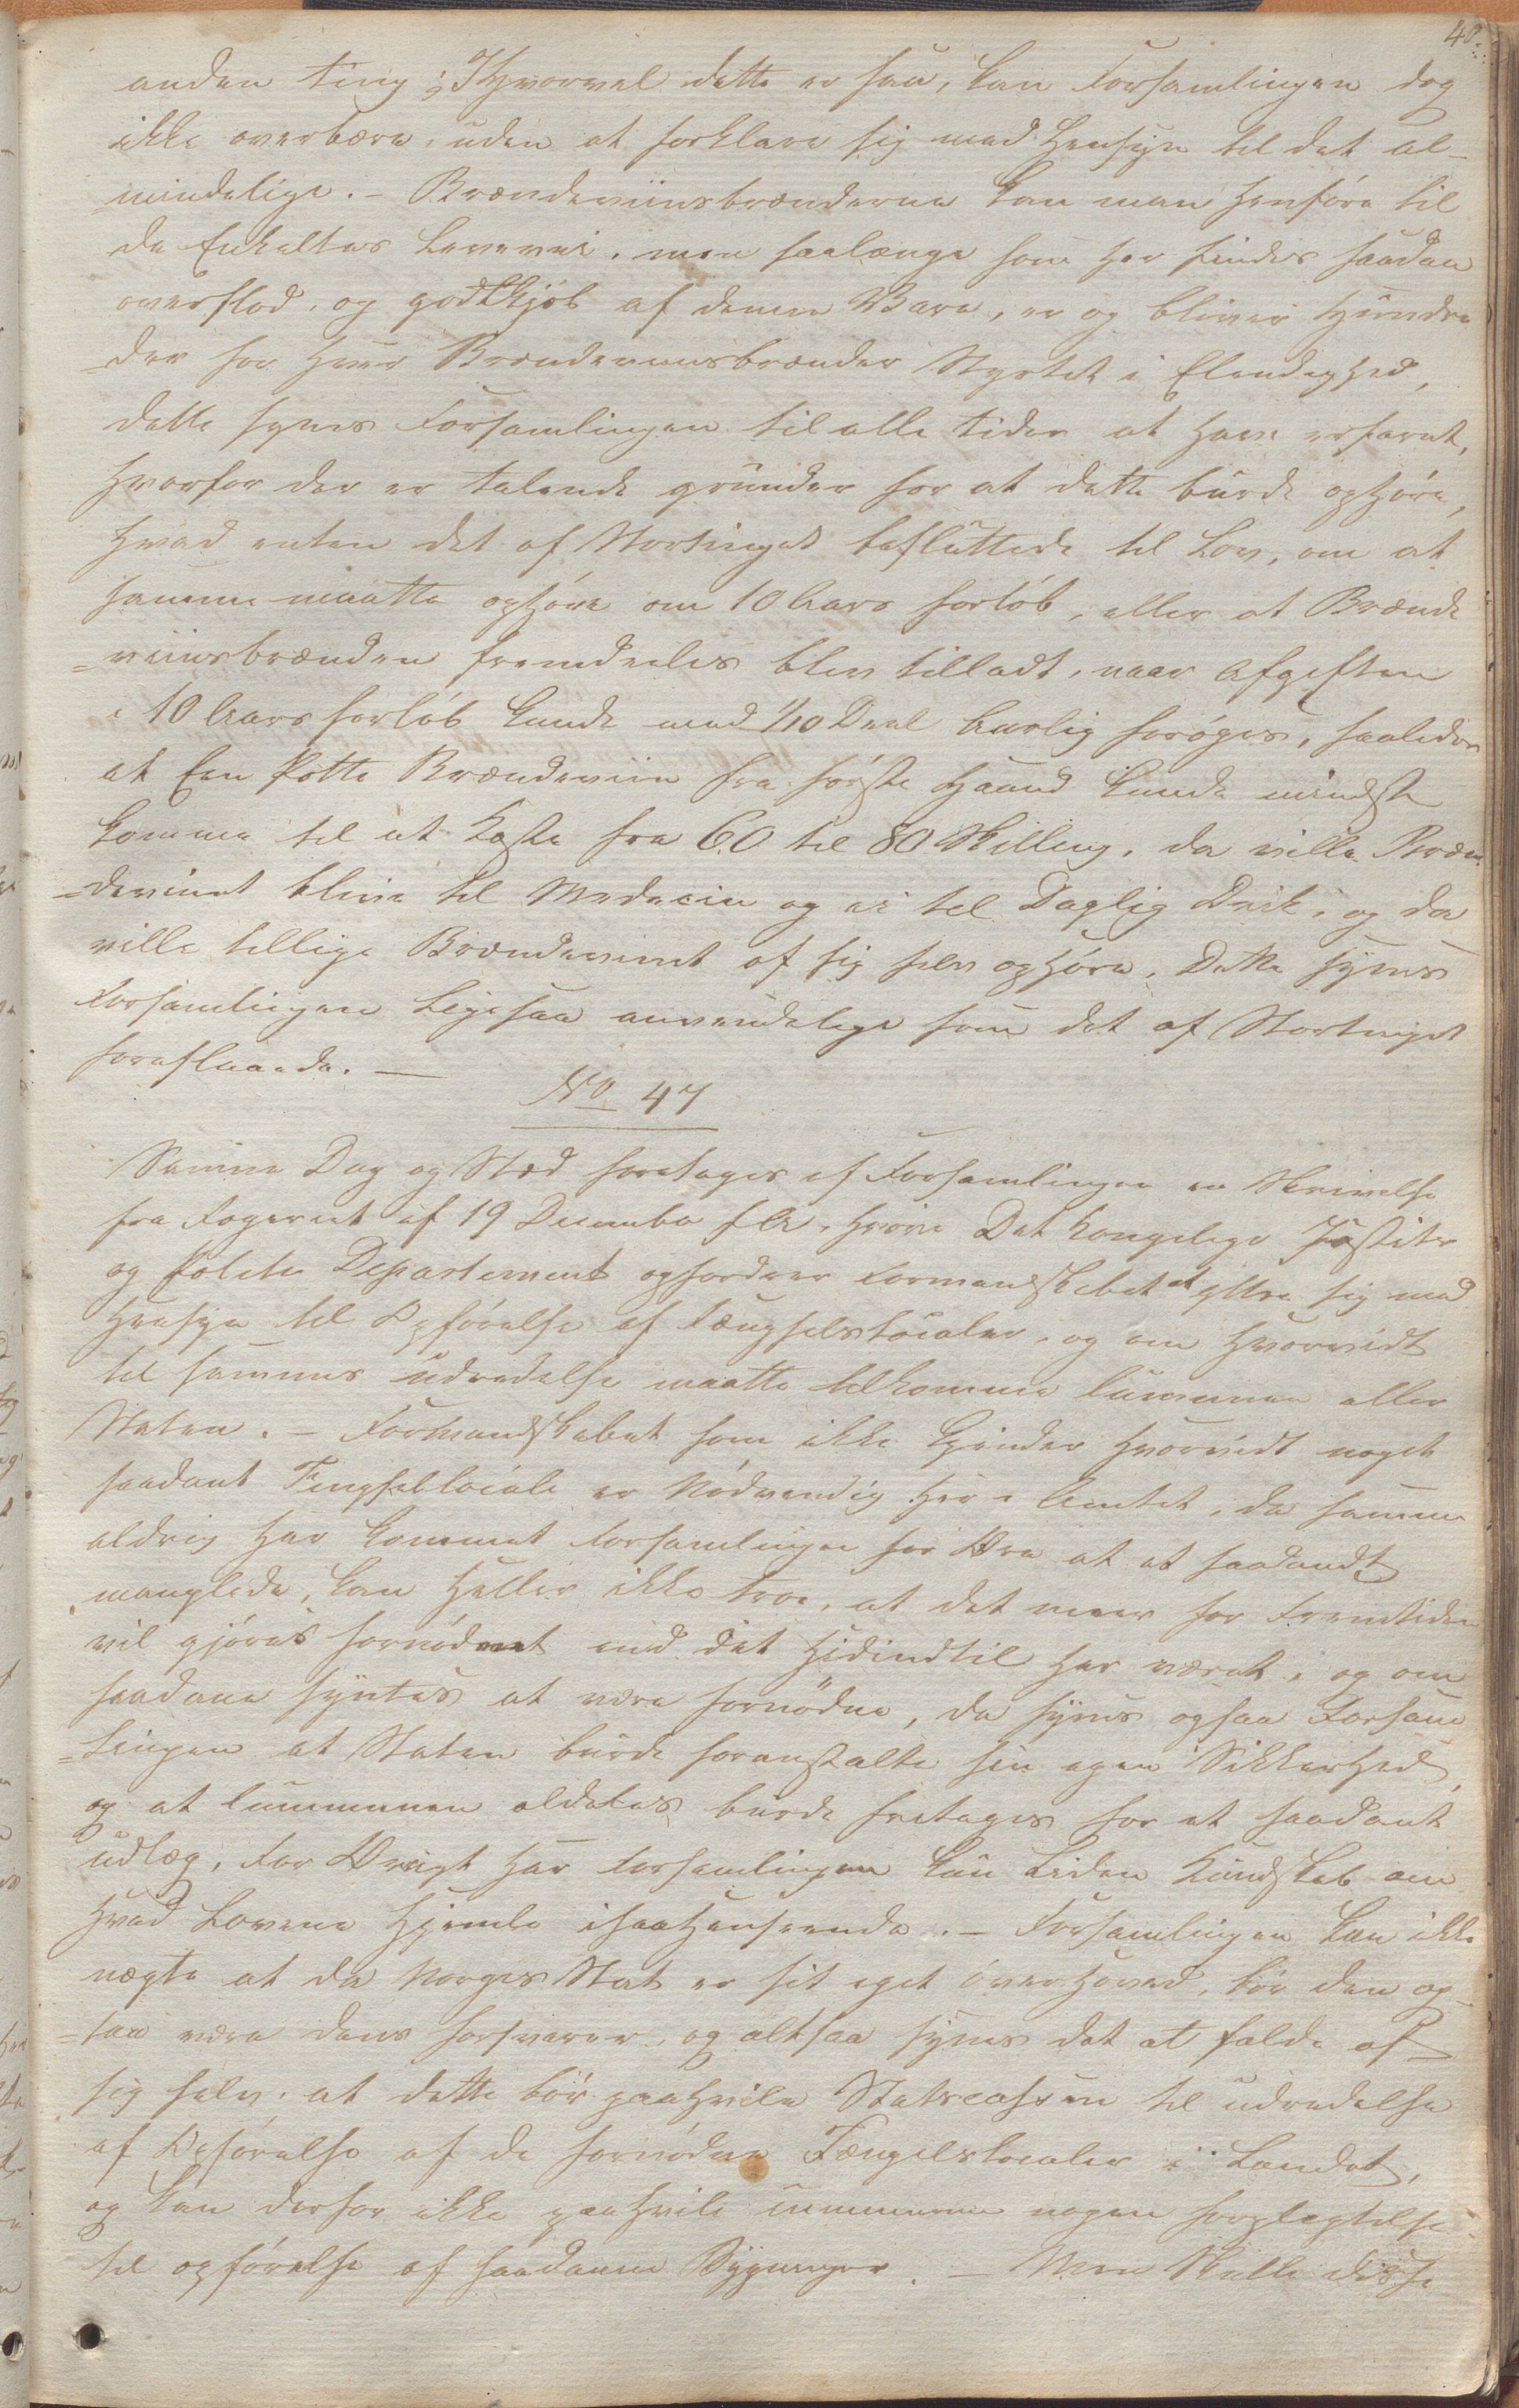 40.
anden ting; Hvorvel dette er saa, kan Forsamlingen dog
ikke overbære, uden at forklare sig med Hensyn til det al-
=mindelige. - Brændeviinsbrænderne kan man henføre til
de Enkeltes Levevei, men saalænge som her findes saadan
overflod, og godtkjøb af denne Vare, er og bliver Hundre
=der for hver Brændeviinsbrænder Styrtet i Elendighed,
dette synes Forsamlingen til alle tider at have erfaret,
hvorfor der er talende grunder for at dette burde ophøre,
hvad enten det af Stortinget besluttede til Lov, om at
samme maatte ophøre om 10 Aars forløb, eller at Brænde
=viinsbrænden fremdeeles blev tilladt, naar Afgiften
i 10 Aars forløb kunde med 1/10 Deel Aarlig forøges, saaledes
at Een Potte Brændeviin fra første Haand kunde mindst
komme til at Koste fra 60 til 80 Skilling, da ville Bræn
=devinet blive til Medecin og ei til Daglig Drik, og da
ville tillige Brændevinet af sig selv ophøre, Dette synes
Forsamlingen Ligesaa anvendelige som det af Stortinget
foreslaaede. -
No 47
Samme Dag og Stæd foretoges af Forsamlingen en Skrivelse
fra Fogderiet af 19 December f A. hvori Det Kongelige Justits
og Politie Departement opfordrer Formandskabet at yttre sig med
Hensyn til Opførelse af Fængselslocaler, og om hvorvidt
til sammes udredelse maatte tilkomme Cummunen eller
Staten. - Formandskabet som ikke kjender hvorvidt noget
saadant Fengsellocale er Nødvendig her i Amtet, da samme
aldrig har kommet Forsamlingen for Øre at et saadandt
manglede, kan heller ikke troe, at det meer for Fremtiden
vil gjøres fornødent end det hidindtil har været, og om
saadane syntes at være fornødne, da synes ogsaa Forsam
=lingen at Staten burde foranstalte sin egen Sikkerhed,
og at Cummunen aldeles burde fretages for et saadant
udlæg, For Øvrigt har Forsamlingen kun Liden Kundskab om
hvad Lovene hjemle i saa Henseende. - Forsamlingen kan ikke
nægte at da Norges Stat er sit eget Overhoved, bør den og-
=saa være dens forsvarer, og altsaa synes det at falde af
sig selv, at dette bør paahvile Statscassen til udredelse
af Opførelse af de fornødne Fængelslocaler i Landet,
og kan derfor ikke paahvile Cummunerne nogen forplegtelse
til opførelse af saadanne Bygninger. - Men Skulle disse